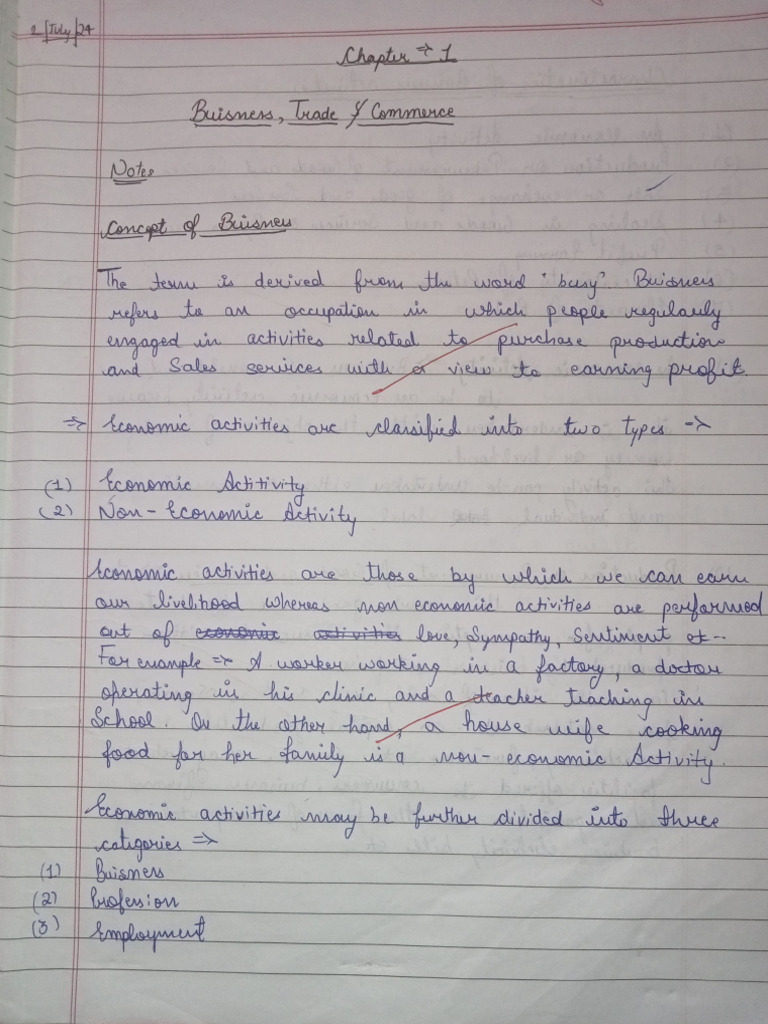 2/July/24
Chapter ⇒ 1
Buisness, Trade & Commerce
Notes
Concept of Buisness
The term is derived from the word "busy" Buisness
refers to an occupation in which people regularly
engaged in activities related to purchase production
and Sales services with a view to earning profit.
⇒ Economic activities are classified into two types →
(1) Economic Actitivity
(2) Non-Economic Activity
Economic activities are those by which we can earn
our livelihood whereas non economic activities are performed
out of economic activities love, Sympathy, Sentiment etc..
For example ⇒ A worker working in a factory, a doctor
operating in his clinic and a teacher teaching in
School. On the other hand, a house wife cooking
food for her family is a non-economic Activity.
Economic activities may be further divided into three
categories ⇒
(1) Buisness
(2) Profession
(3) Employment